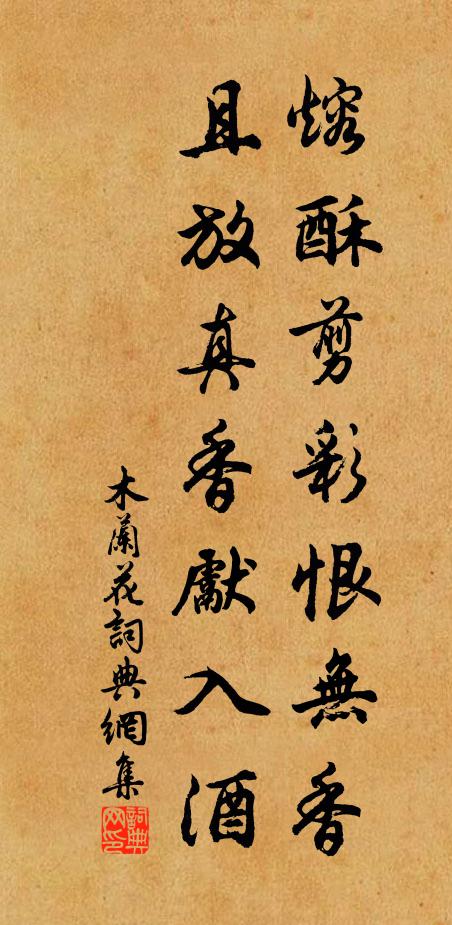 熔酥剪彩恨無香
且放真香獻入酒
木蘭花詞典網集
詞典網印